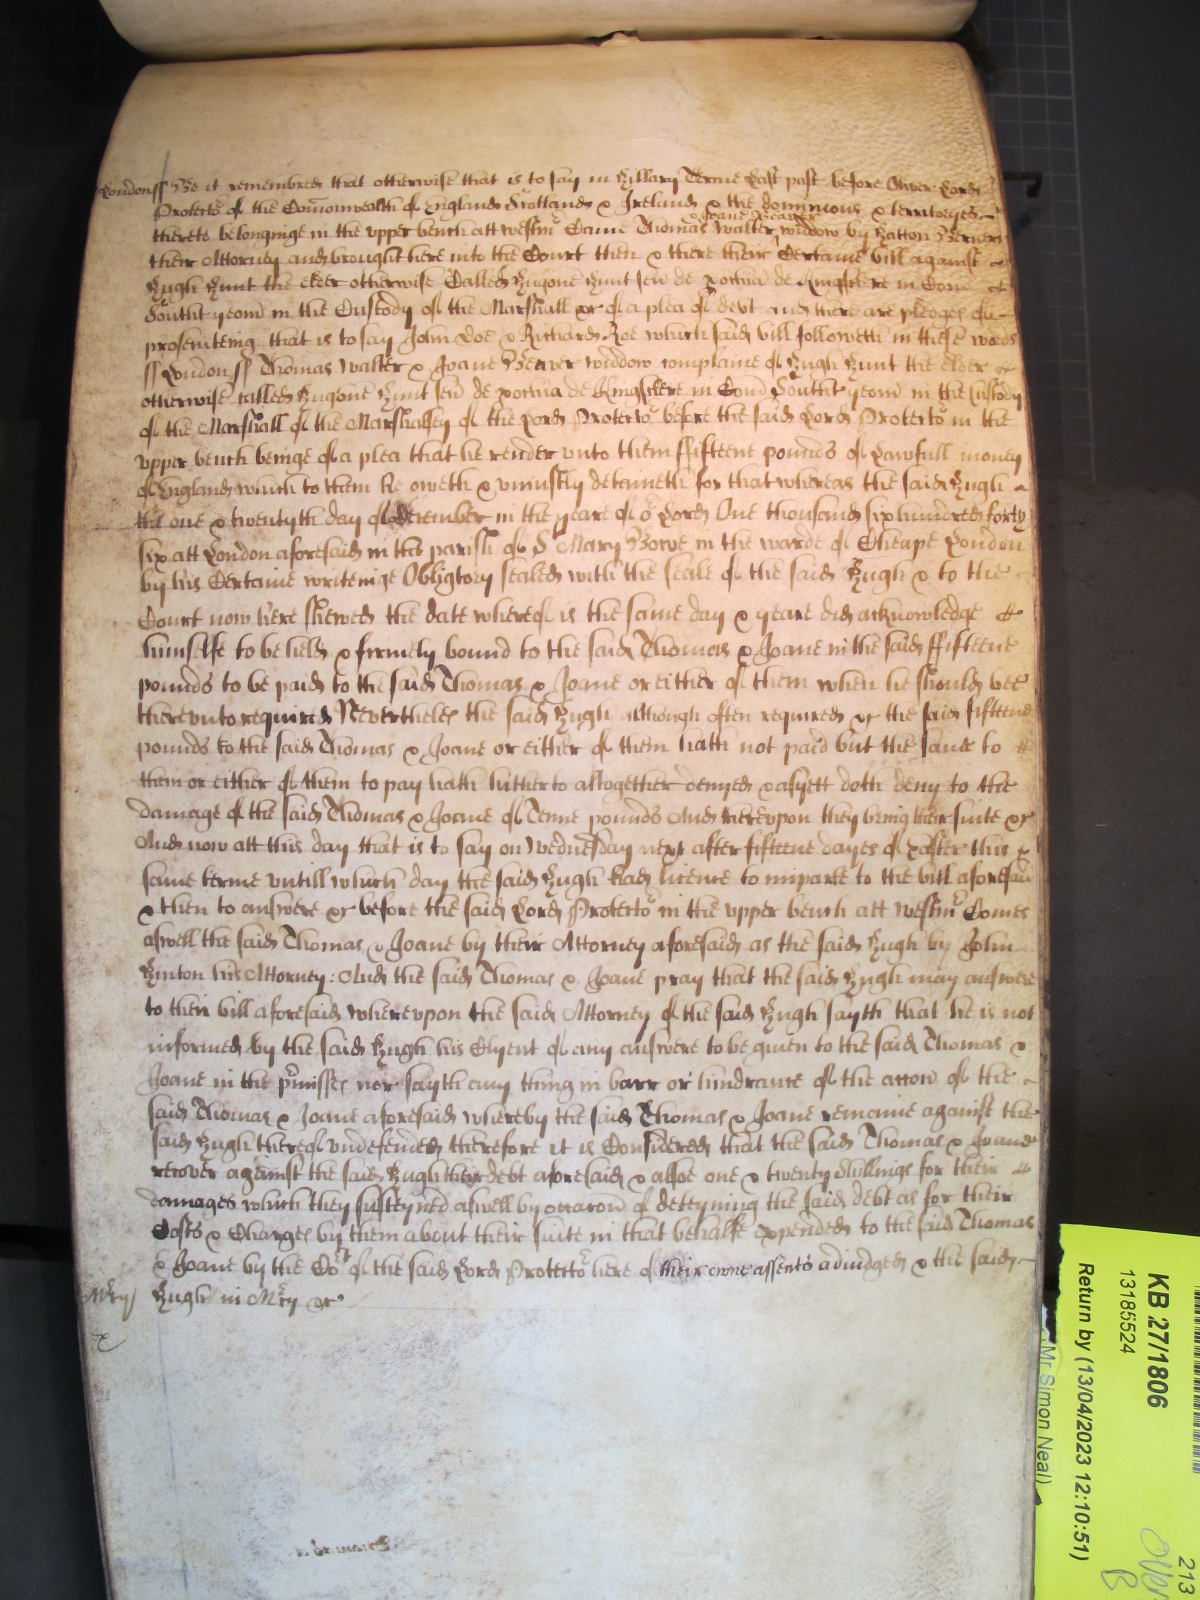 Londonss Be it remembred that otherwise that is to say in Hillary Terme Last past before Oliver Lord
Protector of the Comonwealth of England Scotland & Ireland & the dominions & territoryes
& Joane Beaver
thereto belonginge in the upper bench att Westm Came Thomas Walter widdow by Hatton Berners
their Attorney and brought here into the Court then & there their Certaine bill against
Hugh Hunt the elder otherwise Called Hugone Hunt sen de in Com
Southt yeom in the Custody of the Marshall &c of a plea of debt and there are pledges of
prosecuteing that is to say John Doe & Richard Roe which said bill followeth in these words
ss London ss Thomas Walter & Joane Beaver widdow complaine of Hugh Hunt the elder
otherwise called Hugone Hunt sen de in Com Southt yeom in the Custody
of the Marshall of the Marshalsey of the Lord Protector before the said Lord Protector in the
upper bench beinge of a plea that he render unto them ffifteene pounds of Lawfull money
of England which to them he oweth & uniustly deteineth for that whereas the said Hugh
the one & twentyth day of December in the yeare of or Lord One thousand six hundred forty
six att London aforesaid in the parish of St Mary Bowe in the warde of Cheape London
by his Certaine writeinge Obligtory sealed with the seale of the said Hugh & to the
Court now here shewed the date whereof is the same day & yeare did acknowledge
himselfe to be held & firmely bound to the said Thomas & Joane in the said ffifteene
pounds to be paid to the said Thomas & Joane or either of them when he should bee
thereunto required Neverthelesse the said Hugh although often required &c the said fifteene
pounds to the said Thomas & Joane or either of them hath not paid but the same to
them or either of them to pay hath hitherto altogether denyed & as yett doth deny to the
damage of the said Thomas & Joane of Tenne pounds And thereupon they bring their suite &c
And now att this day that is to say on Wednesday next after fifteene dayes of Easter this
same terme untill which day the said Hugh had licence to imparle to the bill aforesaid
& then to answere &c before the said Lord Protector in the upper bench att Westmr Comes
aswell the said Thomas & Joane by their Attorney aforesaid as the said Hugh by John
Hinton his Attorney: And the said Thomas & Joane pray that the said Hugh may answere
to their bill aforesaid whereupon the said Attorney of the said Hugh sayth that he is not
informed by the said Hugh his Clyent of any answere to be given to the said Thomas &
Joane in the pmisses nor sayth any thing in barr or hindrance of the accon of the
said Thomas & Joane aforesaid whereby the said Thomas & Joane remaine against the
said Hugh thereof undefended therefore it is Considered that the said Thomas & Joane
recover against the said Hugh their debt aforesaid & alsoe one & twenty shillings for their
damages which they susteyned aswell by occacon of deteyning the said debt as for their
Costs & Charges by them about their suite in that behalfe expended to the said Thomas
& Joane by the Cort of the said Lord Protector here of their owne assents adiudged & the said
Hugh in Mcy &c
Mcy
KB 27/1806
13185524
Return by (13/04/2023 12:10:51)
Mr Simon Neal)
213